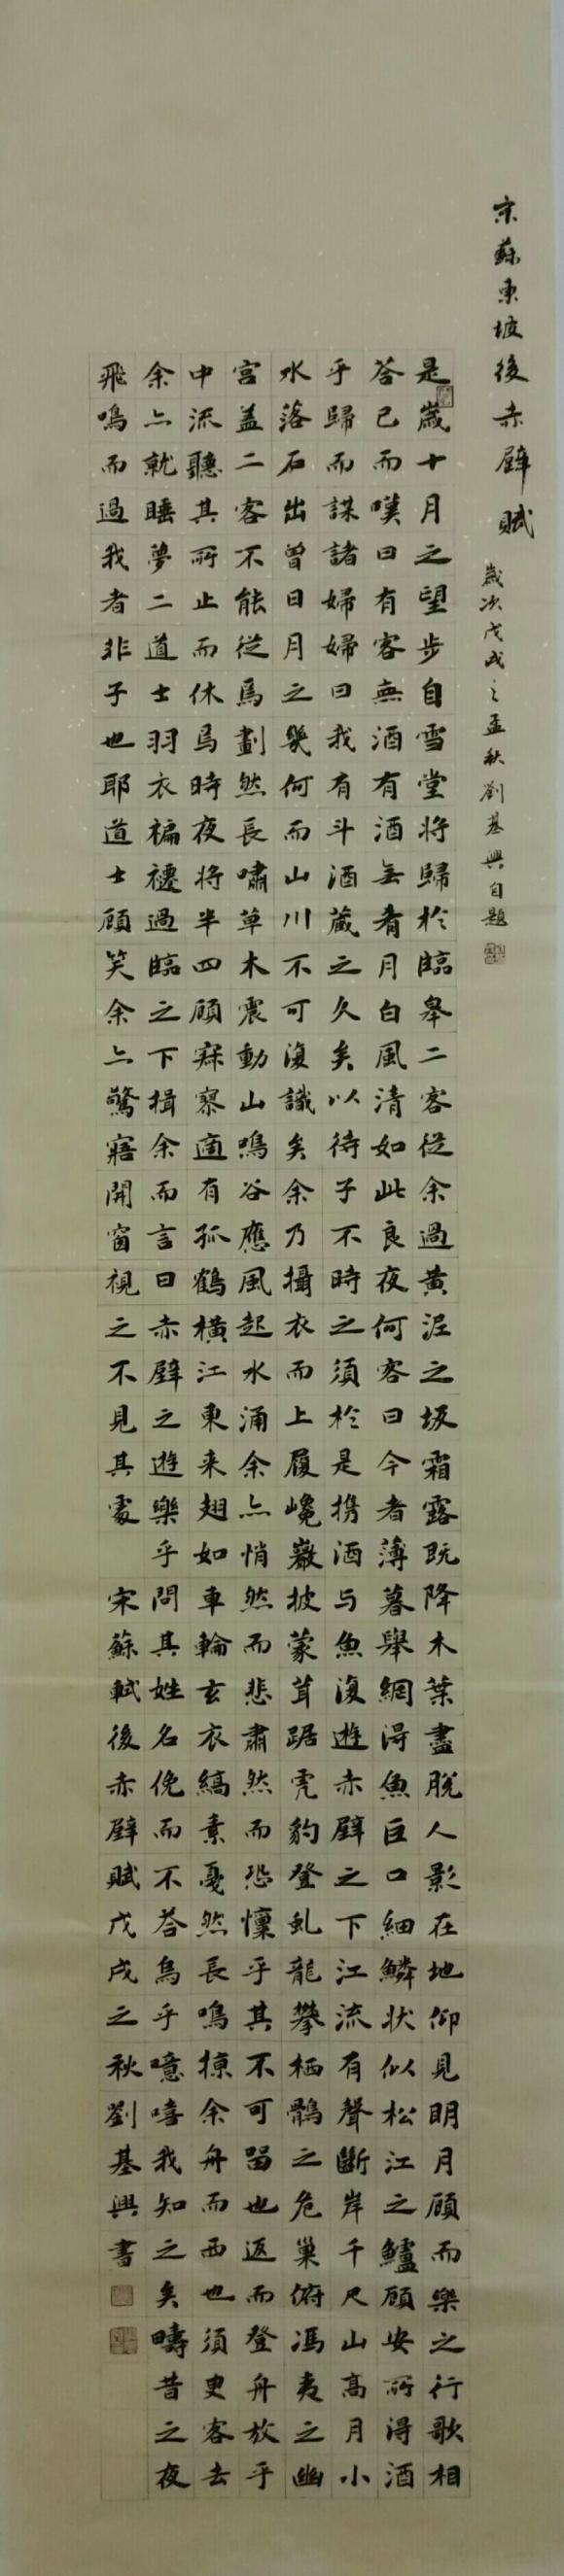 宋蘇東坡後赤壁賦 歲次戊戌之孟秋劉基興自題
是歲十月之望步自雪堂將歸於臨皋二客從余過黃泥之坂霜露既降木葉盡脫人影在地仰見明月顧而樂之行歌相
答已而嘆曰有客無酒有酒無肴月白風清如此良夜何客曰今者薄暮舉網得魚巨口細鱗狀似松江之鱸顧安所得酒
乎歸而謀諸婦婦曰我有斗酒藏之久矣以待子不時之須於是携酒与魚復遊赤壁之下江流有聲斷岸千尺山高月小
水落石出曾日月之幾何而山川不可復識矣余乃攝衣而上履巉巖披蒙茸踞虎豹登虬龍攀栖鶻之危巢俯馮夷之幽
宮盖二客不能從焉劃然長嘯草木震動山鳴谷應風起水涌余亦悄然而悲肅然而恐懍乎其不可留也返而登舟放乎
中流聽其所止而休焉時夜將半四顧寂寥適有孤鶴橫江東来翅如車輪玄衣縞素戛然長鳴掠余舟而西也須臾客去
余亦就睡夢二道士羽衣褊褼過臨之下揖余而言曰赤壁之遊樂乎問其姓名俛而不答烏乎噫嘻我知之矣疇昔之夜
飛鳴而過我者非子也耶道士顧笑余亦驚寤開窗視之不見其處 宋蘇軾後赤壁賦戊戌之秋劉基興書